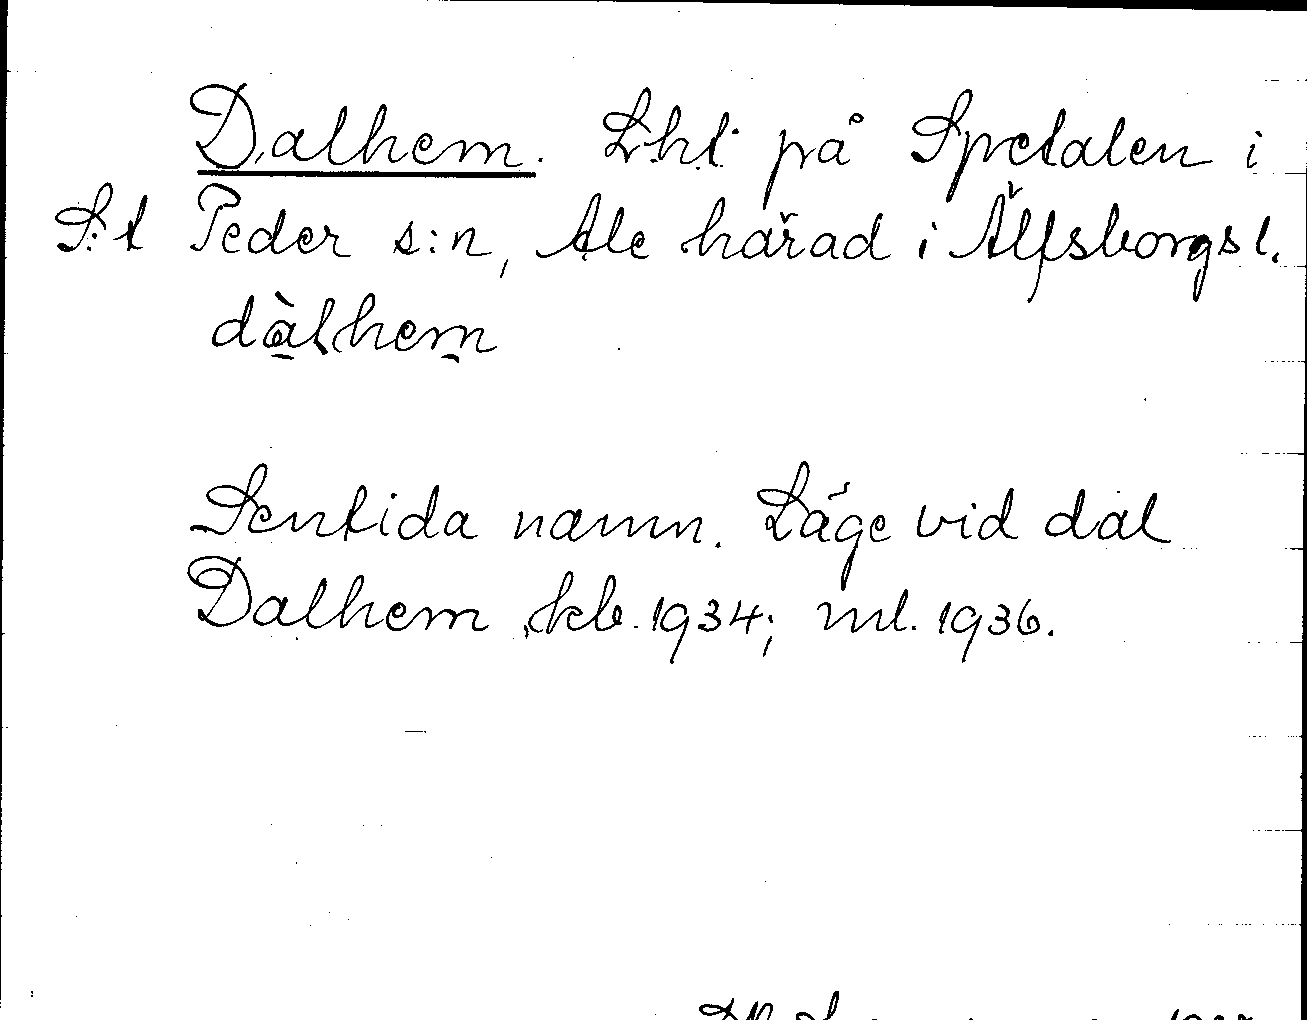 Dalhem. Lht på Spetalen i
S:t Peder s:n, Ale härad i Älfsborgs l.
dàlhem
Sentida namn. Läge vid dal
Dalhem kb. 1934; ml. 1936.